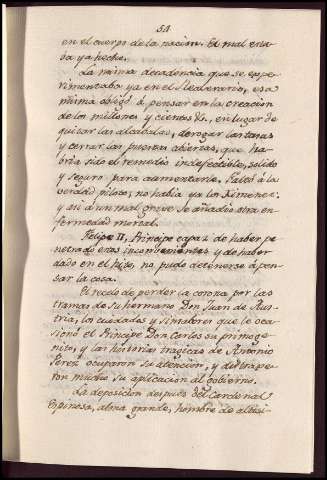 54
en el cuerpo de la nacion. El mal esta-
ba ya hecho.
La misma decadencia que se espe-
rimentaba ya en el Real erario, esa
misma obligó á pensar en la creacion
de los millones y cientos &c., en lugar de
quitar las alcabalas, derogar las tasas
y cerrar las puertas abiertas, que ha-
bria sido el remedio indefectible, solido
y seguro para aumentarle. Faltó á la
verdad piloto; no habia ya los Ximenez:
y asi á un mal grave se añadio otra en-
fermedad mortal.
Felipe II, Principe capaz de haber pe-
netrado esos inconvenientes y de haber
dado en el hito, no pudo detenerse á pen-
sar la cosa.
El recelo de perder la corona por las
tramas de su hermano Don Juan de Aus-
tria, los cuidados y sinsabores que le oca-
sionó el Principe Don Carlos su primoge-
nito, y las historias tragicas de Antonio
Perez ocuparon su atencion, y distraje-
ron mucho su aplicacion al gobierno.
La deposicion despues del Cardenal
Espinosa, alma grande, hombre de altisi-